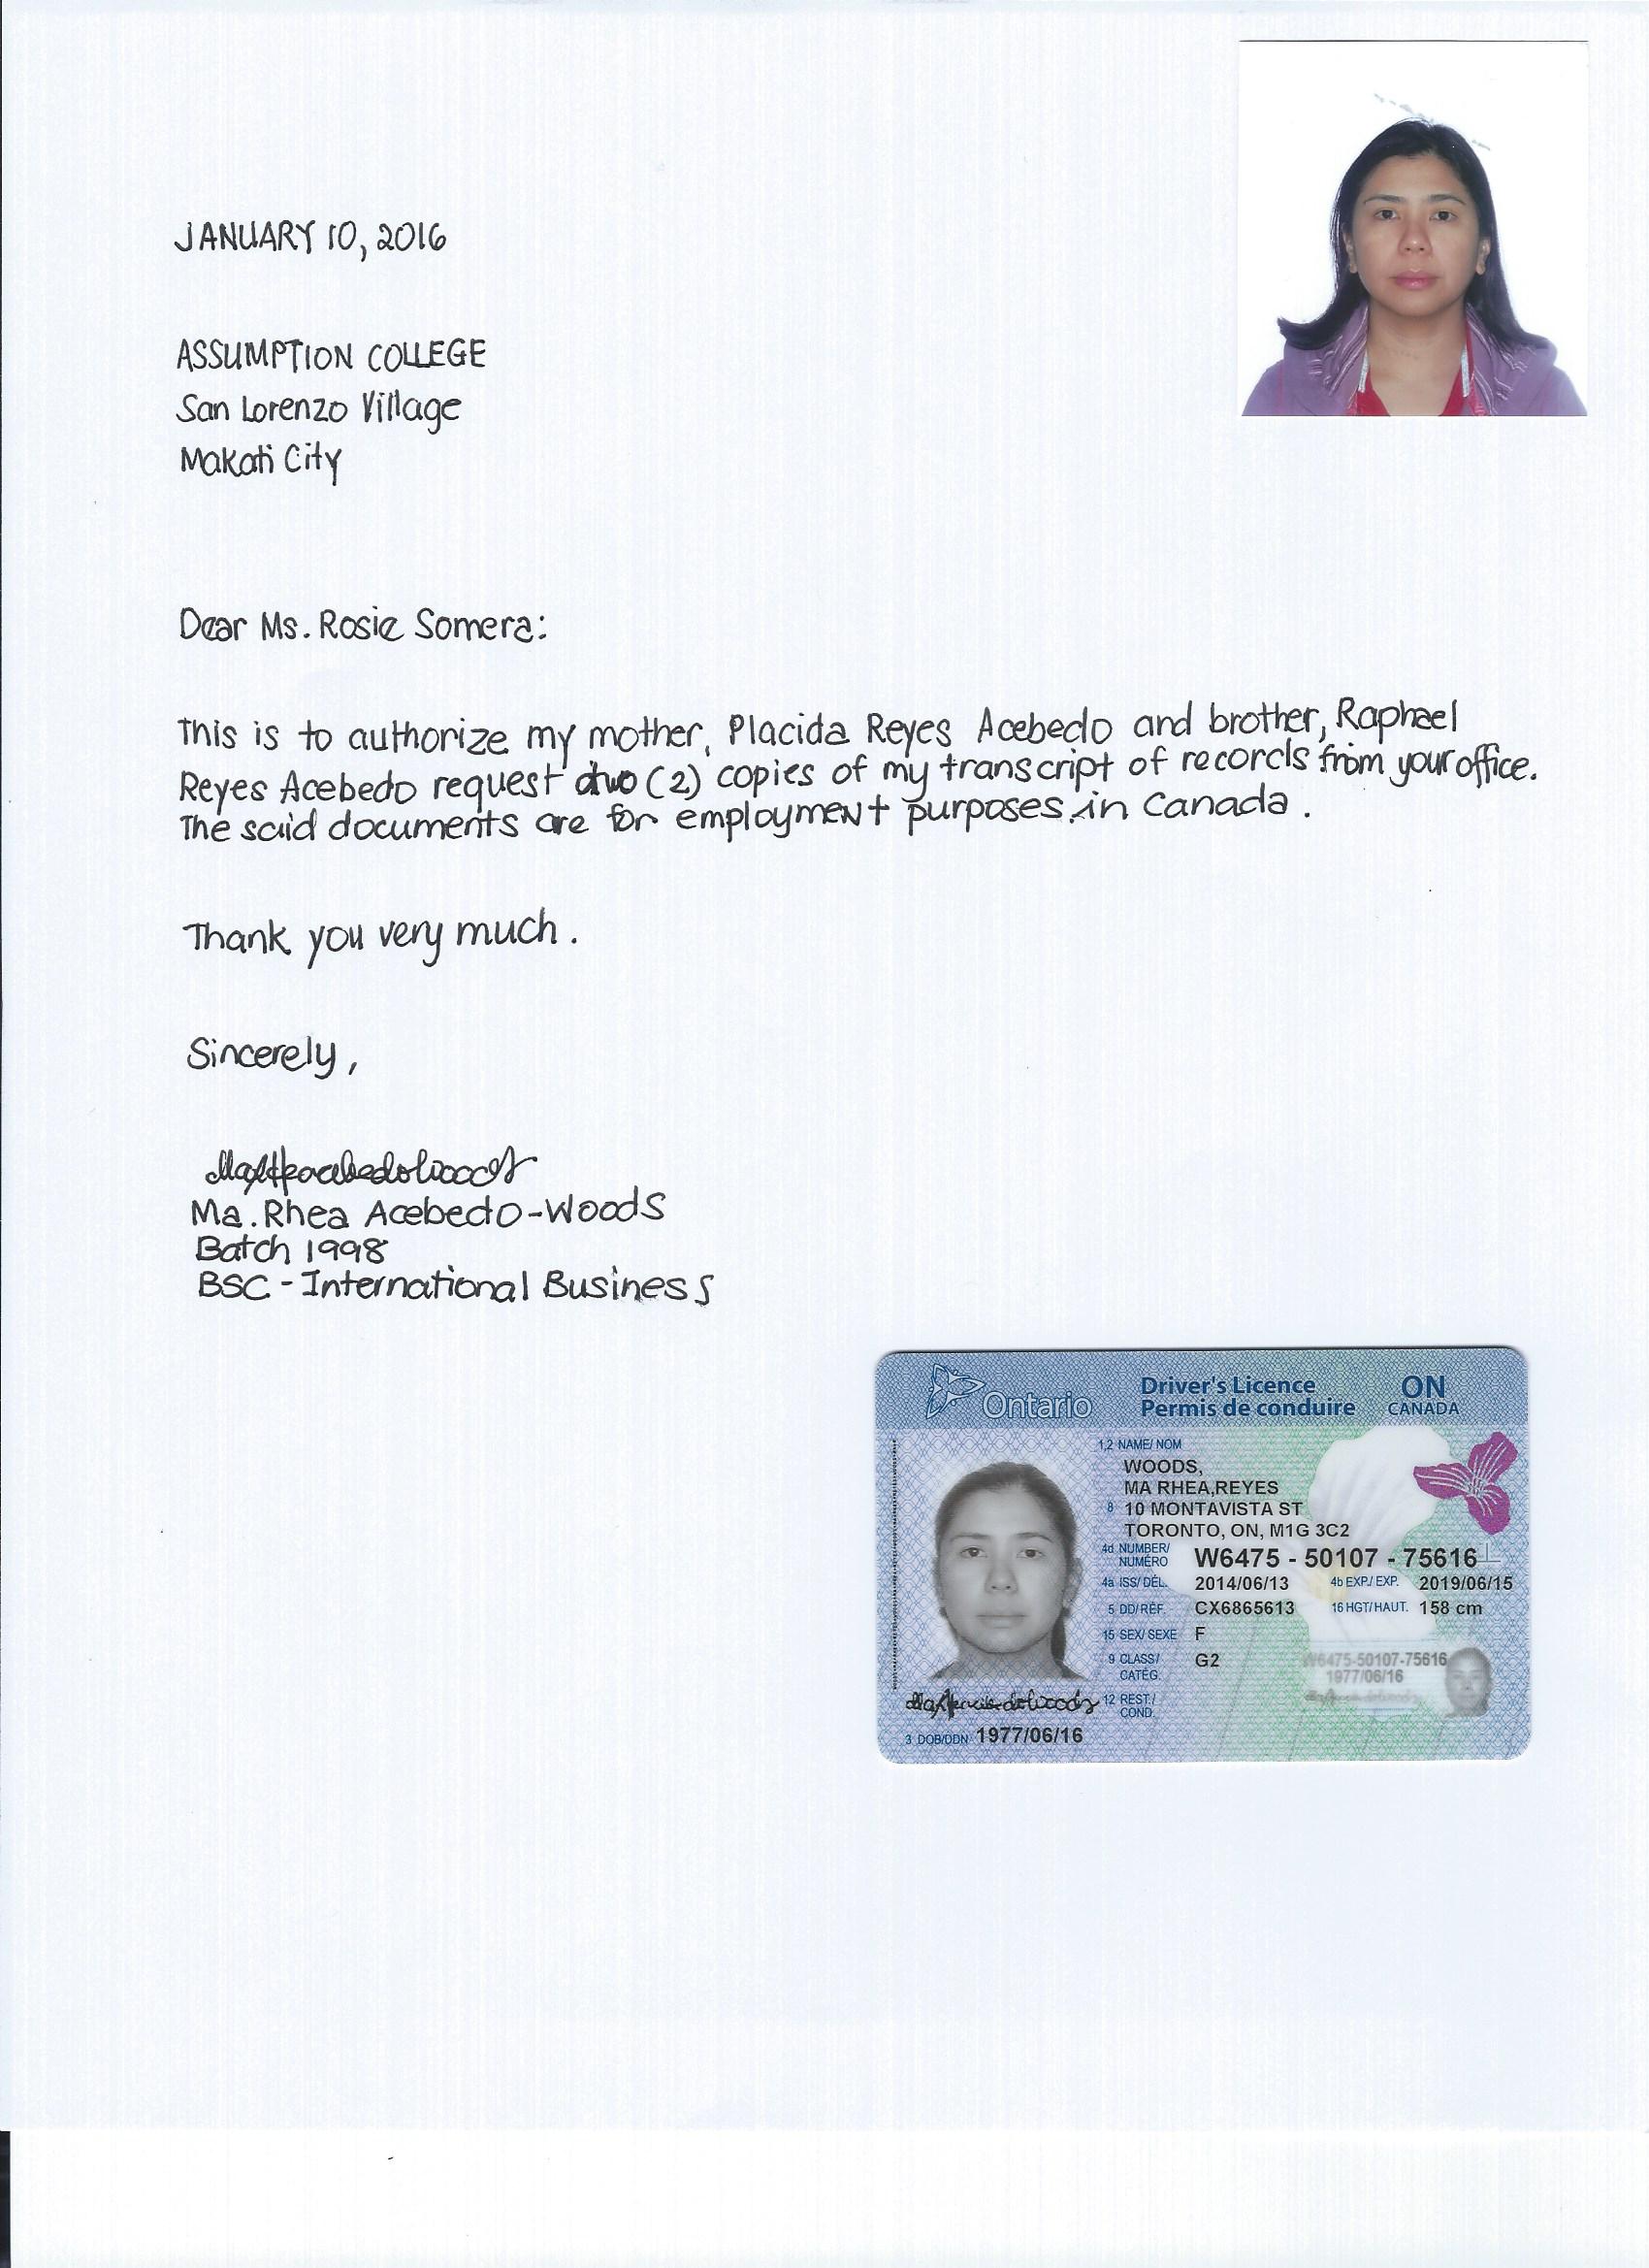 JANUARY 10, 2016
ASSUMPTION COLLEGE
San Lorenzo Village
Makati City
Dear Ms. Rosie Somera:
This is to authorize my mother, Placida Reyes Acebedo and brother, Raphael
Reyes Acebedo request two (2) copies of my transcript of records from your office.
The said documents are for employment purposes in Canada.
Thank you very much.
Sincerely,
Ma. Rhea Acebedo-Woods
Batch 1998
BSC - International Business
Ontario
Driver's Licence ON
Permis de conduire CANADA
1,2 NAME/ NOM
WOODS,
MA RHEA,REYES
8 10 MONTAVISTA ST
TORONTO, ON, M1G 3C2
4d NUMBER/ NUMÉRO W6475 - 50107 - 75616
4a ISS/ DÉL. 2014/06/13 4b EXP./ EXP. 2019/06/15
5 DD/RÉF. CX6865613 16 HGT/HAUT. 158 cm
15 SEX/ SEXE F
9 CLASS/ CATÉG. G2
W6475-50107-75616
1977/06/16
12 REST./ COND.
3 DOB/DDN 1977/06/16